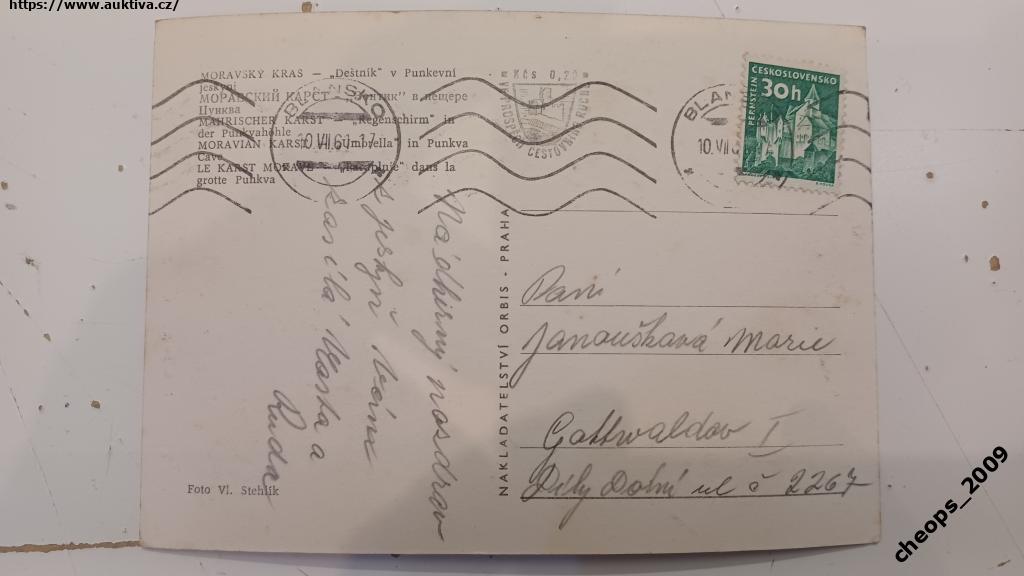 https://www.auktiva.cz/
MORAVSKÝ KRAS — „Deštník" v Punkevní
jeskyni
МОРАВСКИЙ КАРСТ — в пещере
Пунква
MÄHRISCHER KARST — „Regenschirm" in
der Punkvahöhle
MORAVIAN KARST — „Umbrella" in Punkva
Cave
LE KARST MORAVE — dans la
grotte Punkva
BLANSKO
10.VII.6
Kčs 0,20
VE PROSPĚCH CESTOVNÍHO RUCHU
BLAN
10.VII.6
ČESKOSLOVENSKO
30h
PERNŠTEJN
Nádherný pozdrav
z
zasílá Vlasta a
Ruda
NAKLADATELSTVÍ ORBIS - PRAHA
Paní
Janoušková Marie
Gottwaldov I
Díly Dolní ul č 2267
Foto Vl. Stehlík
cheops_2009